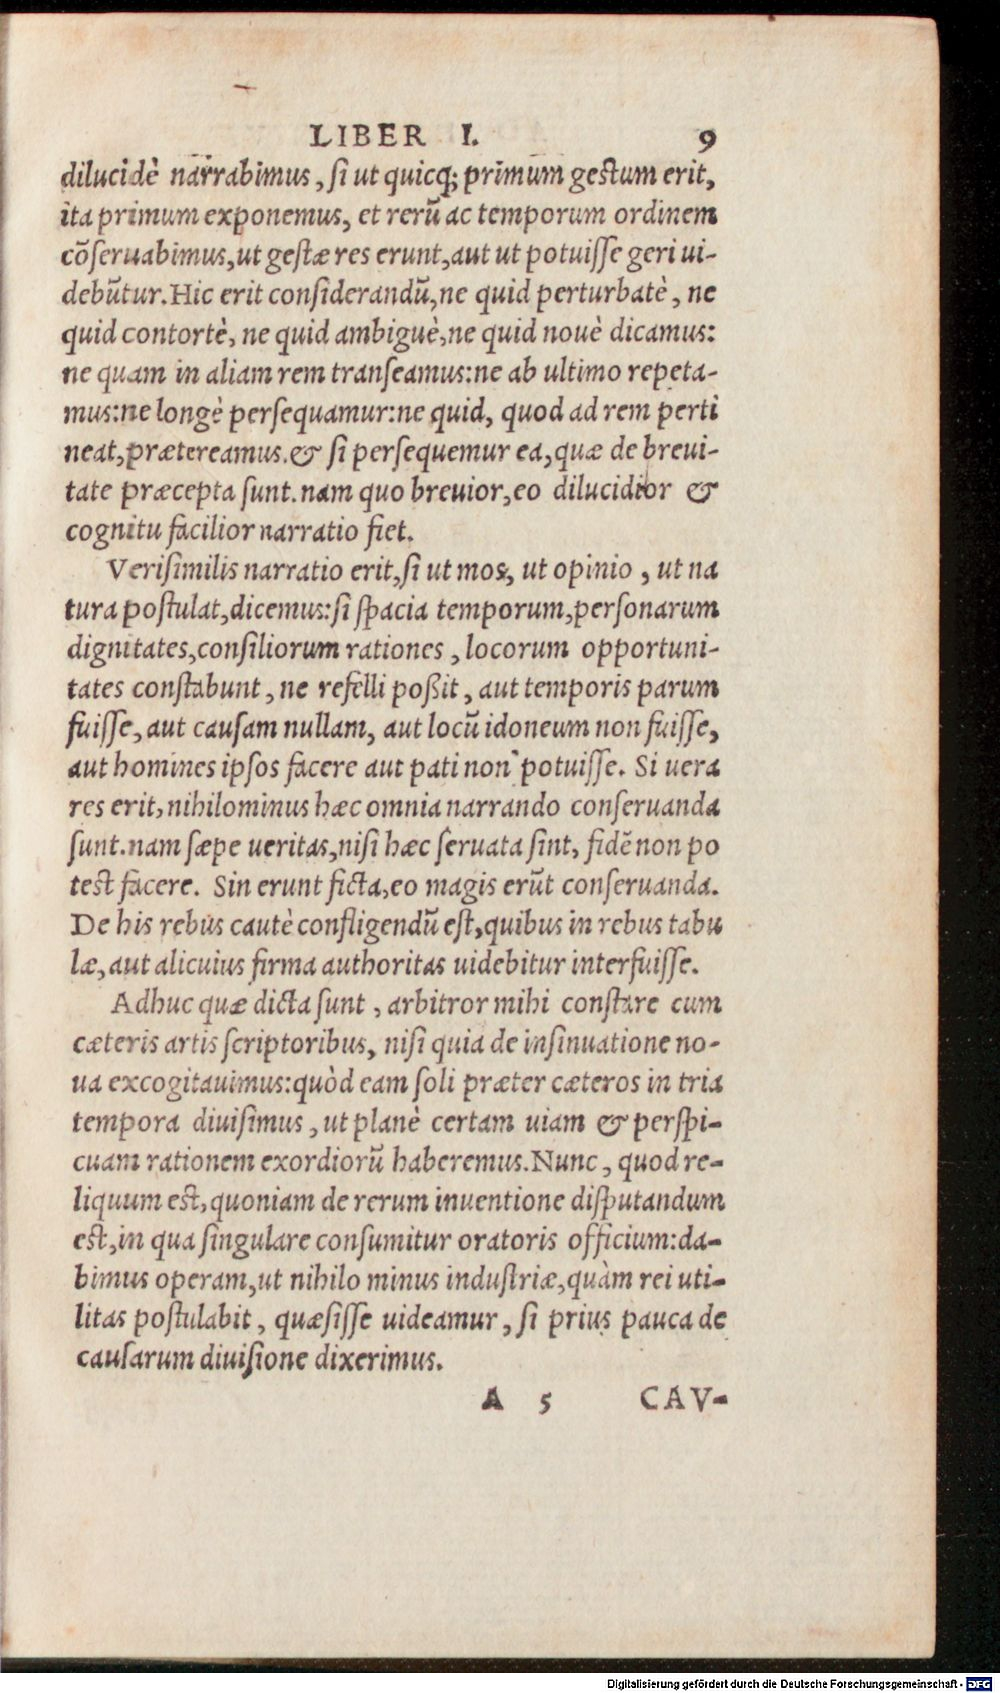 LIBER I. 9
dilucidè narrabimus, si ut quicq; primum gestum erit,
ita primum exponemus, et rerū ac temporum ordinem
cōseruabimus, ut gestæ res erunt, aut ut potuisse geri ui-
debūtur. Hic erit considerandū, ne quid perturbatè, ne
quid contortè, ne quid ambiguè, ne quid nouè dicamus:
ne quam in aliam rem transeamus: ne ab ultimo repeta-
mus: ne longè persequamur: ne quid, quod ad rem perti
neat, prætereamus. & si persequemur ea, quæ de breui-
tate præcepta sunt. nam quo breuior, eo dilucidior &
cognitu facilior narratio fiet.
Verisimilis narratio erit, si ut mos, ut opinio, ut na
tura postulat, dicemus: si spacia temporum, personarum
dignitates, consiliorum rationes, locorum opportuni-
tates constabunt, ne refelli poßit, aut temporis parum
fuisse, aut causam nullam, aut locū idoneum non fuisse,
aut homines ipsos facere aut pati non potuisse. Si uera
res erit, nihilominus hæc omnia narrando conseruanda
sunt. nam sæpe ueritas, nisi hæc seruata sint, fidē non po
test facere. Sin erunt ficta, eo magis erūt conseruanda.
De his rebus cautè confligendū est, quibus in rebus tabu
læ, aut alicuius firma authoritas uidebitur interfuisse.
Adhuc quæ dicta sunt, arbitror mihi constare cum
cæteris artis scriptoribus, nisi quia de insinuatione no-
ua excogitauimus: quòd eam soli præter cæteros in tria
tempora diuisimus, ut planè certam uiam & perspi-
cuam rationem exordiorū haberemus. Nunc, quod re-
liquum est, quoniam de rerum inuentione disputandum
est, in qua singulare consumitur oratoris officium: da-
bimus operam, ut nihilo minus industriæ, quàm rei uti-
litas postulabit, quæsisse uideamur, si prius pauca de
causarum diuisione dixerimus.
A 5 CAV-
Digitalisierung gefördert durch die Deutsche Forschungsgemeinschaft - DFG